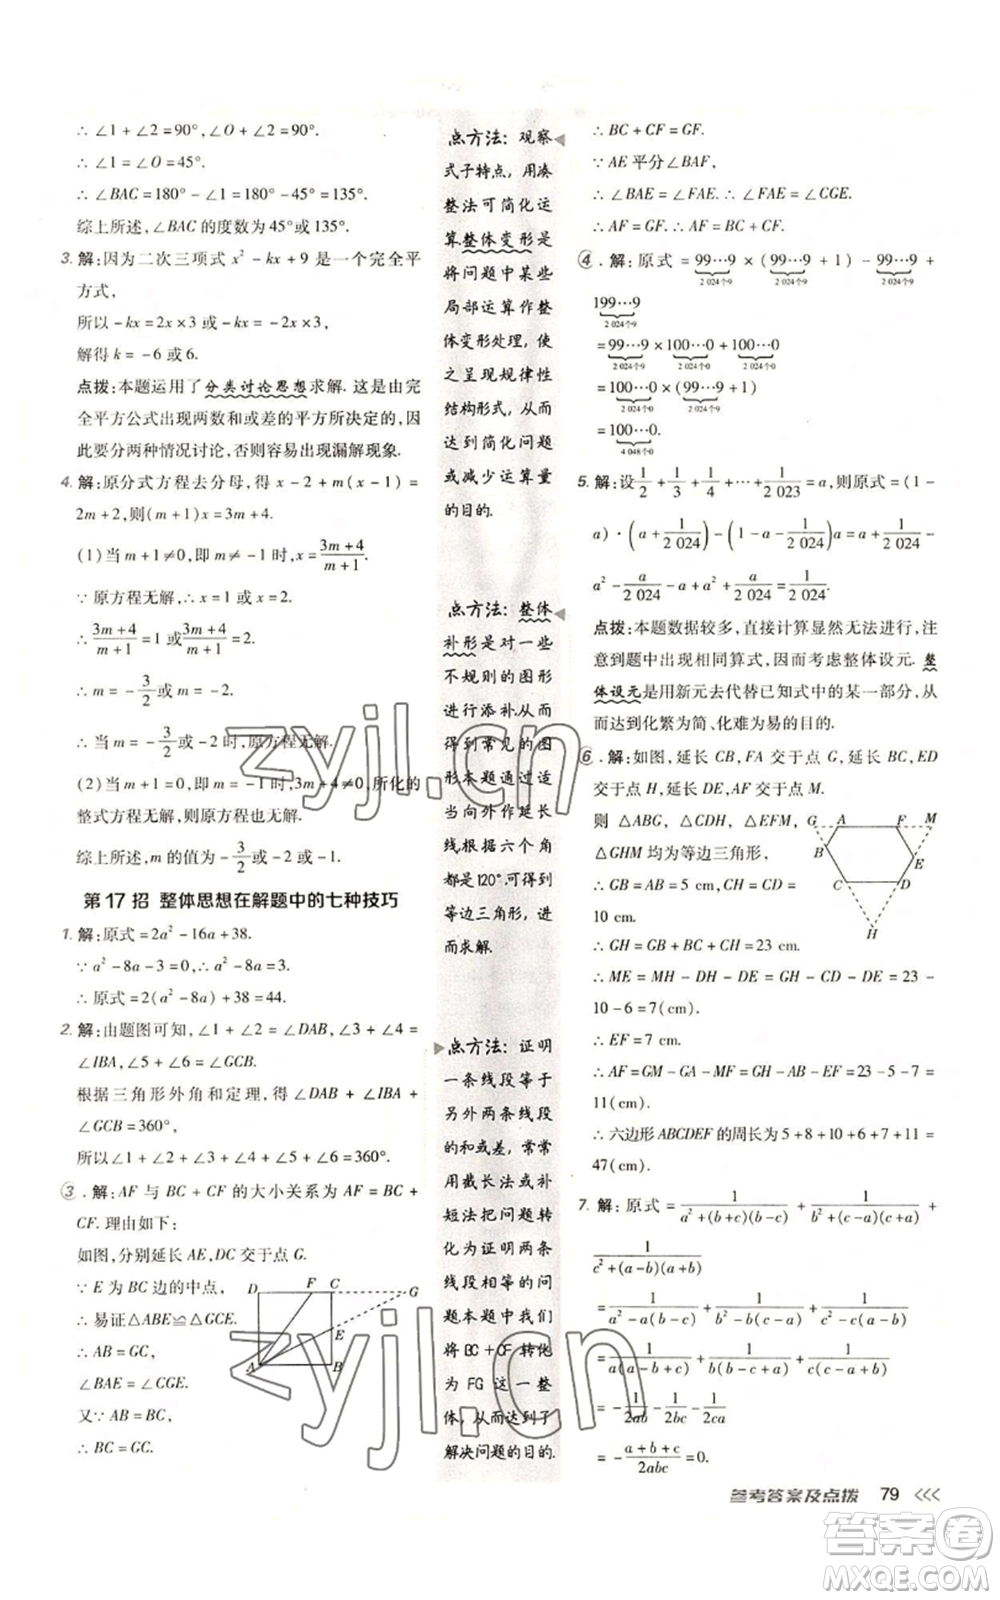 ∴ ∠1 + ∠2 = 90°, ∠O + ∠2 = 90°.
∴ ∠1 = ∠O = 45°.
∴ ∠BAC = 180° - ∠1 = 180° - 45° = 135°.
综上所述, ∠BAC 的度数为 45°或 135°.
3. 解:因为二次三项式 x² - kx + 9 是一个完全平
方式,
所以 -kx = 2x × 3 或 -kx = -2x × 3,
解得 k = -6 或 6.
点拨:本题运用了分类讨论思想求解. 这是由完
全平方公式出现两数和或差的平方所决定的,因
此要分两种情况讨论,否则容易出现漏解现象.
4. 解:原分式方程去分母,得 x - 2 + m(x - 1) =
2m + 2,则(m + 1)x = 3m + 4.
(1)当 m + 1 ≠ 0,即 m ≠ -1 时, x = (3m + 4)/(m + 1).
∵ 原方程无解,∴ x = 1 或 x = 2.
∴ (3m + 4)/(m + 1) = 1 或 (3m + 4)/(m + 1) = 2.
∴ m = -3/2 或 m = -2.
∴ 当 m = -3/2 或 -2 时,原方程无解.
(2)当 m + 1 = 0,即 m = -1 时,3m + 4 ≠ 0,所化的
整式方程无解,则原方程也无解.
综上所述,m 的值为 -3/2 或 -2 或 -1.
第 17 招 整体思想在解题中的七种技巧
1. 解:原式 = 2a² - 16a + 38.
∵ a² - 8a - 3 = 0,∴ a² - 8a = 3.
∴ 原式 = 2(a² - 8a) + 38 = 44.
2. 解:由题图可知,∠1 + ∠2 = ∠DAB,∠3 + ∠4 =
∠IBA,∠5 + ∠6 = ∠GCB.
根据三角形外角和定理,得 ∠DAB + ∠IBA +
∠GCB = 360°,
∴ ∠1 + ∠2 + ∠3 + ∠4 + ∠5 + ∠6 = 360°.
3 . 解:AF 与 BC + CF 的大小关系为 AF = BC +
CF. 理由如下:
如图,分别延长 AE,DC 交于点 G.
∵ E 为 BC 边的中点,
∴ 易证△ABE≌△GCE.
∴ AB = CG,
∠BAE = ∠CGE.
又∵ AB = BC,
∴ BC = GC.
D F C G
E
A B
点方法: 观察
式子特点, 用凑
整法可简化运
算整体变形是
将问题中某些
局部运算作整
体变形处理, 使
之呈现规律性
结构形式, 从而
达到简化问题
或减少运算量
的目的.
点方法: 整体
补形是对一些
不规则的图形
进行添补从而
得到常见的图
形本题通过适
当向外作延长
线根据六个角
都是120°,可得到
等边三角形, 进
而求解.
点方法: 证明
一条线段等于
另外两条线段
的和或差, 常常
用截长法或补
短法把问题转
化为证明两条
线段相等的问
题本题中我们
将 BC+CF 转化
为 FG 这一整
体, 从而达到了
解决问题的目的.
∴ BC + CF = GF.
∵ AE 平分∠BAF,
∴ ∠BAE = ∠FAE. ∴ ∠FAE = ∠CGE.
∴ AF = GF. ∴ AF = BC + CF.
4 . 解:原式 = 99…9 × (99…9 + 1) - 99…9 +
2 024个9 2 024个9 2 024个9
199…9
2 024个9
= 99…9 × 100…0 + 100…0
2 024个9 2 024个0 2 024个0
= 100…0 × (99…9 + 1)
2 024个0 2 024个9
= 100…0.
4 048个0
5. 解:设 1/2 + 1/3 + 1/4 + … + 1/2 023 = a,则原式 = (1 -
a) · (a + 1/2 024) - (1 - a - 1/2 024) · a = a + 1/2 024 -
a² - a/2 024 - a + a² + a/2 024 = 1/2 024.
点拨:本题数据较多,直接计算显然无法进行,注
意到题中出现相同算式,因而考虑整体设元. 整
体设元是用新元去代替已知式中的某一部分,从
而达到化繁为简、化难为易的目的.
6 . 解:如图,延长 CB,FA 交于点 G,延长 BC,ED
交于点 H,延长 DE,AF 交于点 M.
则 △ABG, △CHD, △EFM,
△GHM 均为等边三角形,
∴ GB = AB = 5 cm,CH = CD =
10 cm.
G A F M
B E
C D
H
∴ GH = GB + BC + CH = 23 cm.
∴ ME = MH - DH - DE = GH - CD - DE = 23 -
10 - 6 = 7(cm).
∴ EF = 7 cm.
∴ AF = GM - GA - MF = GH - AB - EF =
11(cm).
∴ 六边形 ABCDEF 的周长为 5 + 8 + 10 + 6 + 7 + 11 =
47(cm).
7. 解:原式 = 1/(a² + (b + c)(b - c)) + 1/(b² + (c - a)(c + a)) +
1/(c² + (a - b)(a + b))
= 1/(a² - a(b + c)) + 1/(b² - b(c + a)) + 1/(c² - c(a + b))
= 1/(a(a - b - c)) + 1/(b(b - c - a)) + 1/(c(c - a - b))
= -1/2ab - 1/2bc - 1/2ca
= -(a + b + c)/2abc = 0.
参考答案及点拨 79
zyjl.cn
zyjl.cn
答案圈
MXQE.COM